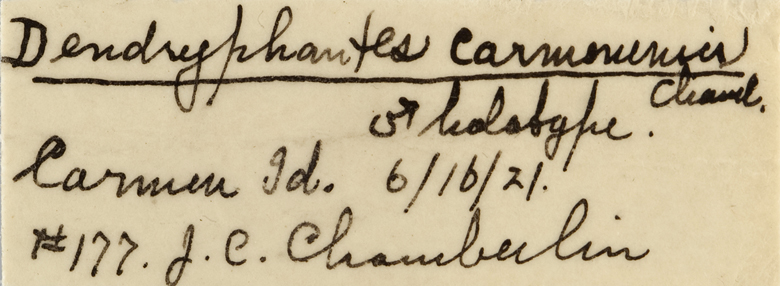 Dendryphantes carmenensis
Chamb.
♂ holotype.
Carmen Id. 6/16/21.
#177. J. C. Chamberlin